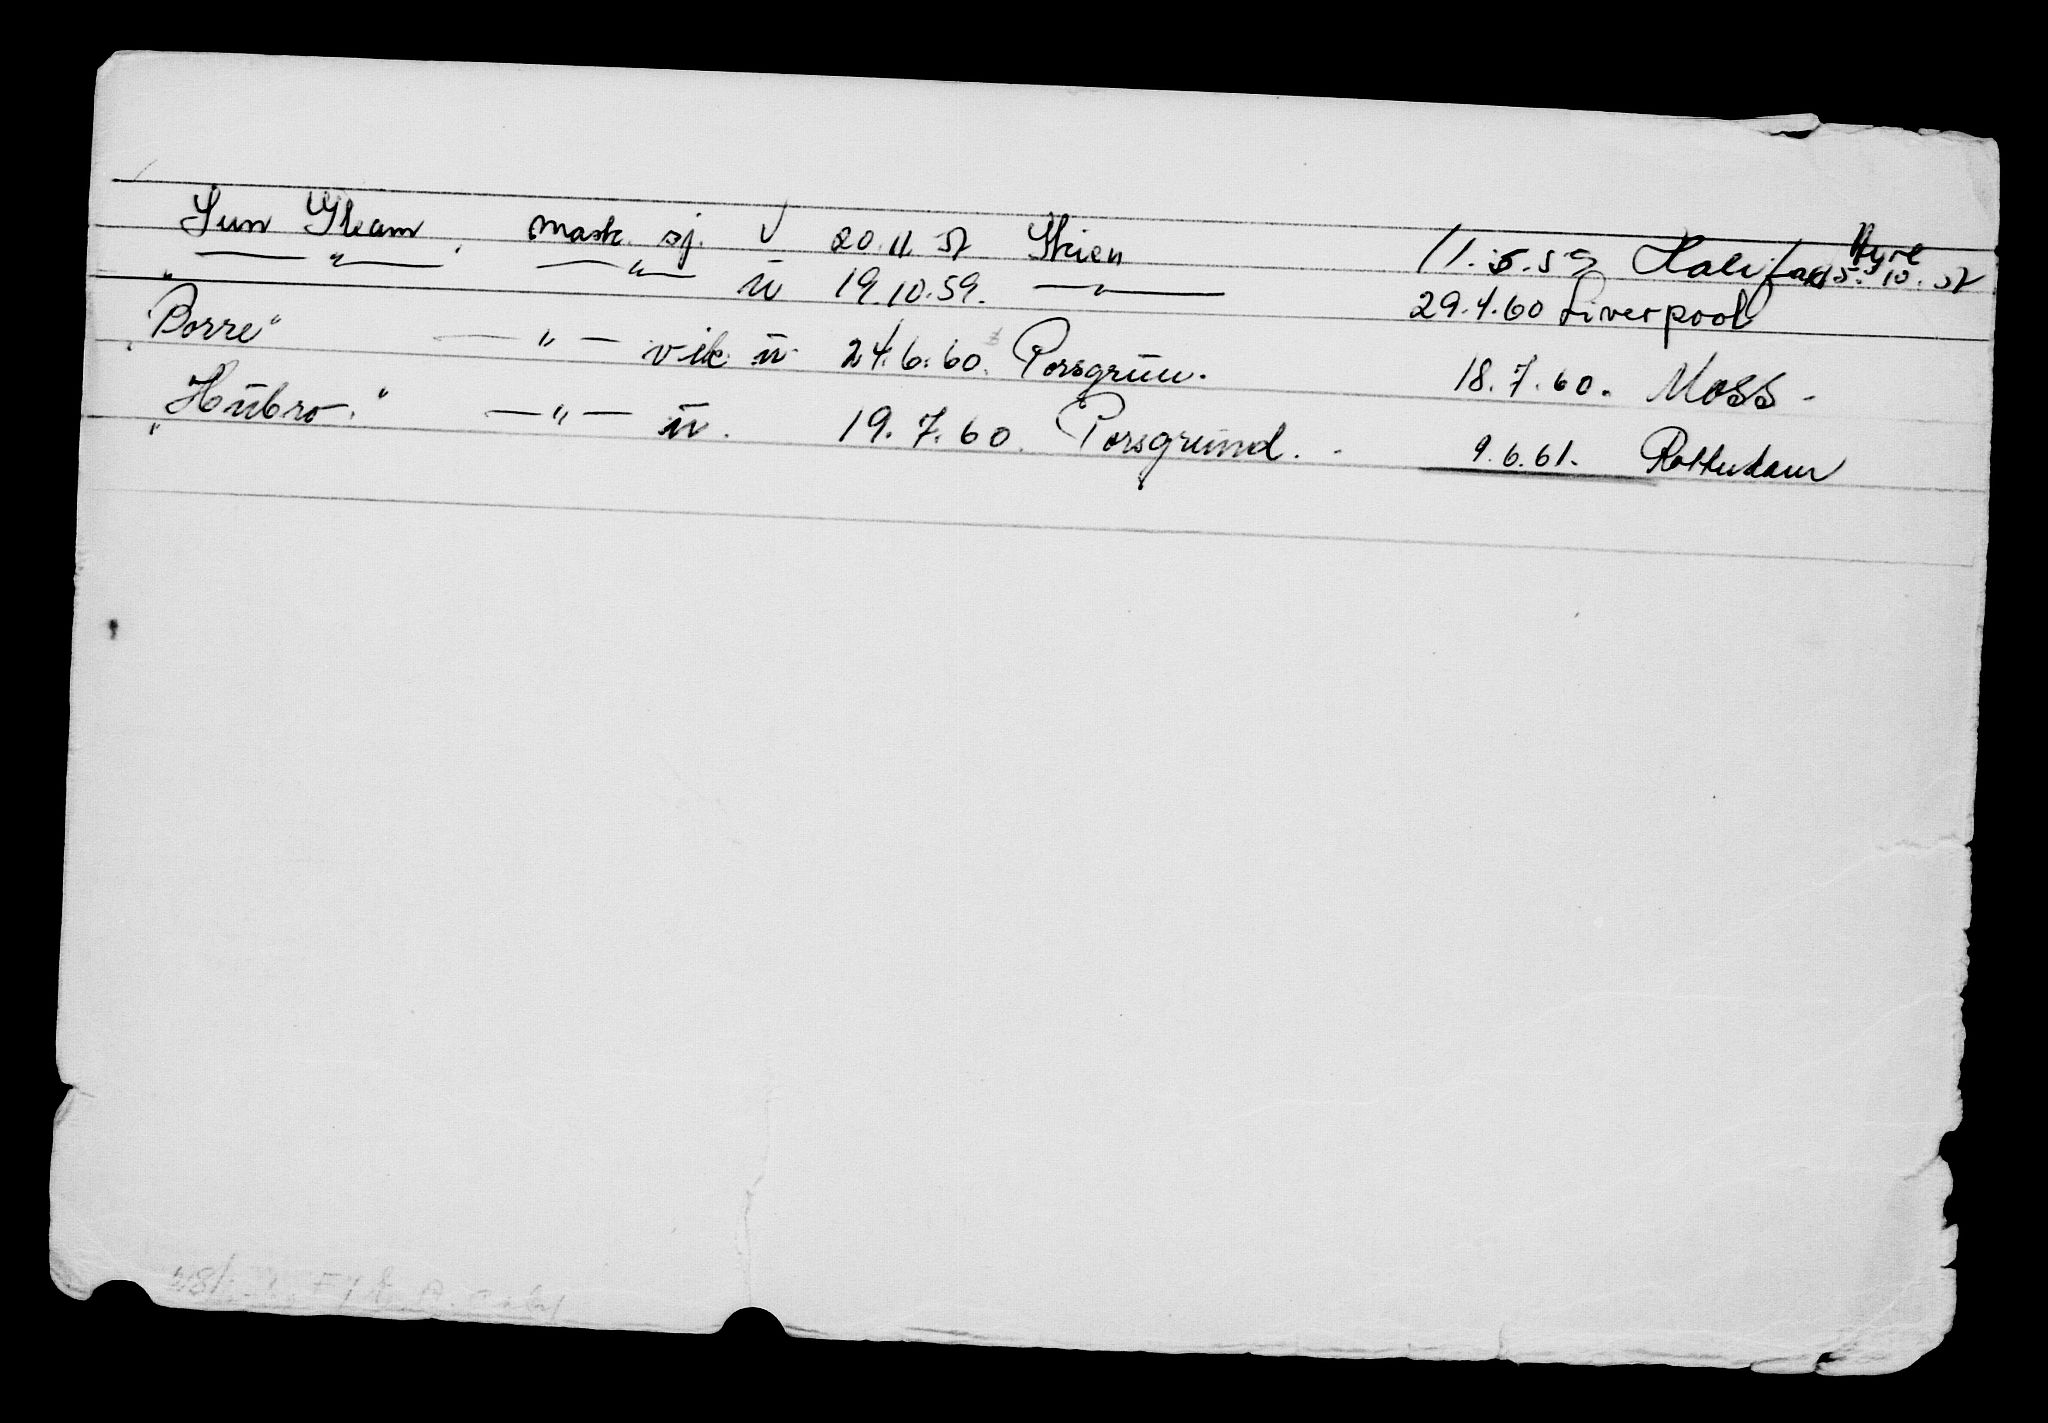 Sun Gleam. mask. sj. √ 20.11.57 Skien 11.5.59 Halifax Hyre 5.10.57
— " — — " — ū 19.10.59. — " — 29.4.60 Liverpool
"Borre" — " — vik. ū. 24.6.60. Porsgrūn. 18.7.60. Moss -
"Hūbro." — " — ū. 19.7.60. Porsgrūnd. 9.6.61. Rotterdam